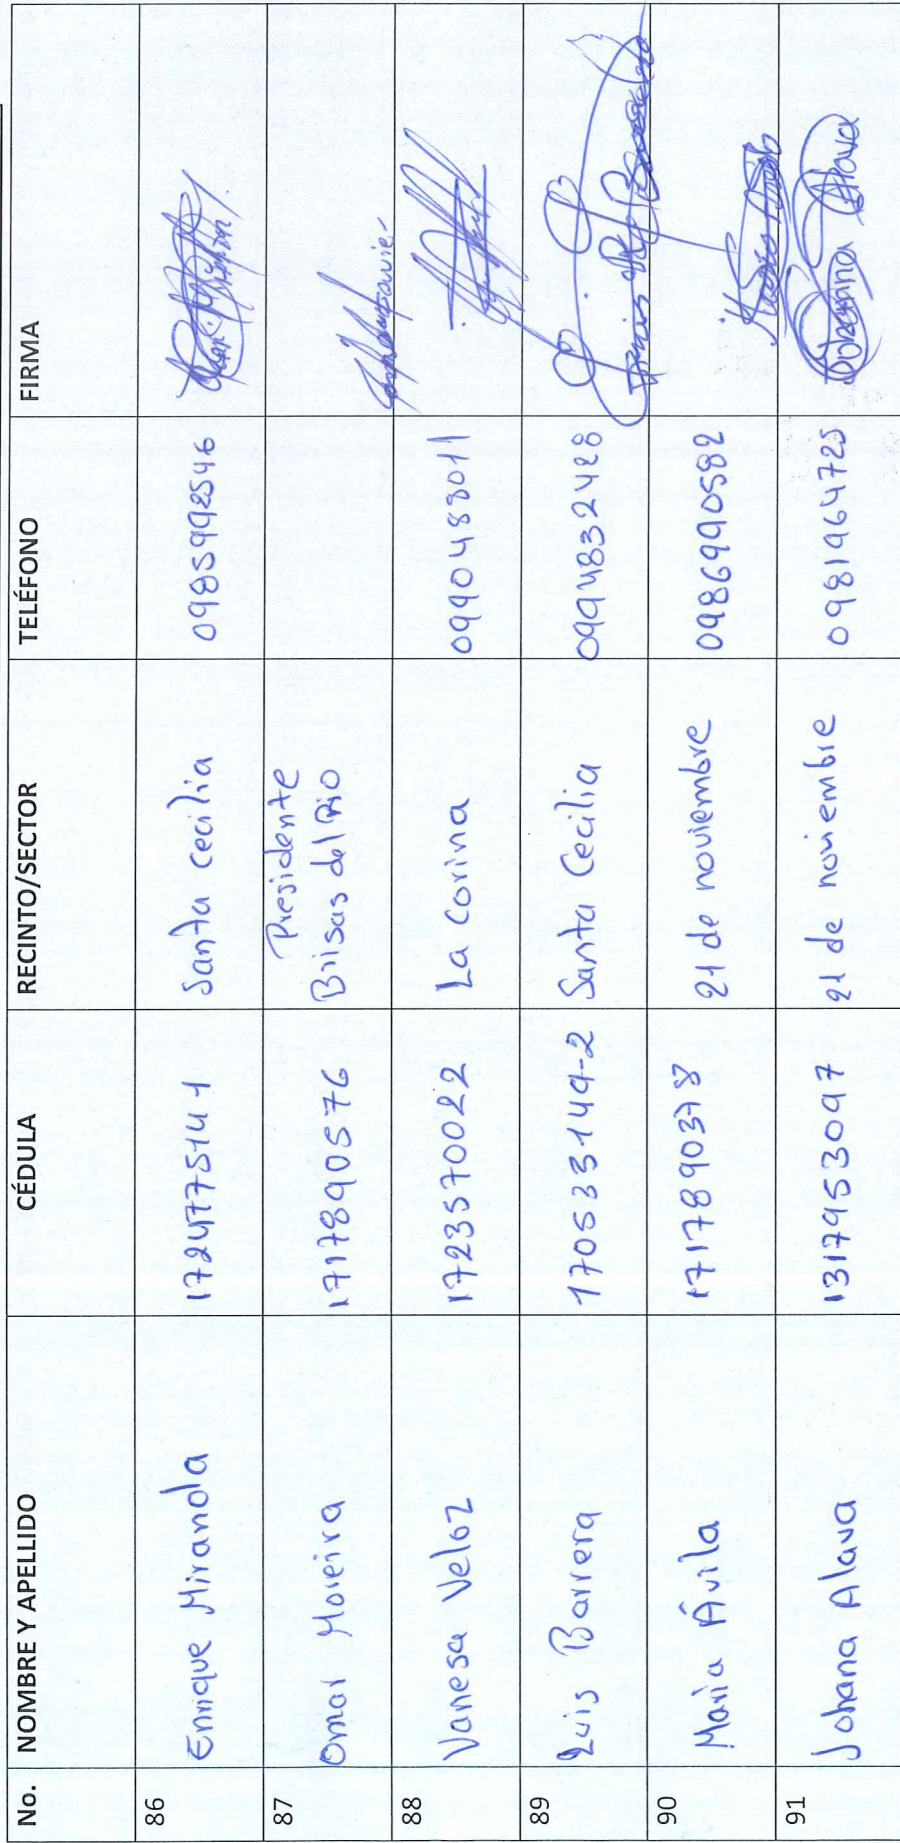 No. NOMBRE Y APELLIDO CÉDULA RECINTO/SECTOR TELÉFONO FIRMA
86 Enrique Miranda 1724775141 Santa Cecilia 0985992546
87 Omar Moreira 1717890576 Presidente
Brisas del Rio
88 Vanesa Veloz 1723570022 La Corina 0990488011
89 Luis Barrera 170533149-2 Santa Cecilia 0994832428
90 Maria Ávila 1717890378 21 de noviembre 0986990582
91 Johana Alava 1317953097 21 de noviembre 0981964725 Johanna Alava